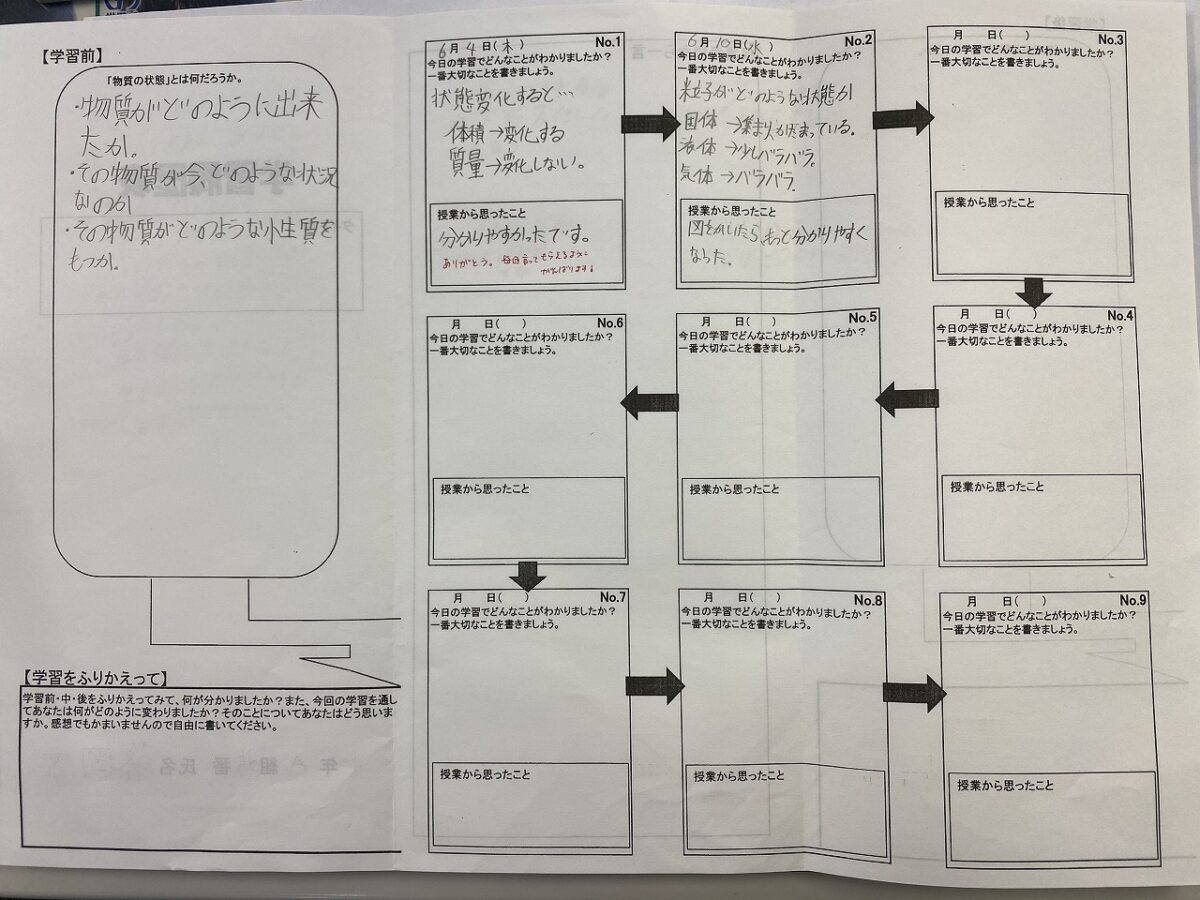 【学習前】
「物質の状態」とは何だろうか。
・物質がどのように出来
たか。
・その物質が今、どのような状況
なのか
・その物質がどのような性質を
もつか。
6月 4日(木) No.1
今日の学習でどんなことがわかりましたか？
一番大切なことを書きましょう。
状態変化すると…
体積→変化する
質量→変化しない。
授業から思ったこと
分かりやすかったです。
ありがとう。毎回言ってもらえるように
がんばります！
6月10日(水) No.2
今日の学習でどんなことがわかりましたか？
一番大切なことを書きましょう。
粒子がどのような状態か
固体→集まりかたまっている。
液体→少しバラバラ。
気体→バラバラ。
授業から思ったこと
図をかいたら、もっと分かりやすく
なった。
月 日( ) No.3
今日の学習でどんなことがわかりましたか？
一番大切なことを書きましょう。
授業から思ったこと
月 日( ) No.4
今日の学習でどんなことがわかりましたか？
一番大切なことを書きましょう。
授業から思ったこと
月 日( ) No.5
今日の学習でどんなことがわかりましたか？
一番大切なことを書きましょう。
授業から思ったこと
月 日( ) No.6
今日の学習でどんなことがわかりましたか？
一番大切なことを書きましょう。
授業から思ったこと
月 日( ) No.7
今日の学習でどんなことがわかりましたか？
一番大切なことを書きましょう。
授業から思ったこと
月 日( ) No.8
今日の学習でどんなことがわかりましたか？
一番大切なことを書きましょう。
授業から思ったこと
月 日( ) No.9
今日の学習でどんなことがわかりましたか？
一番大切なことを書きましょう。
授業から思ったこと
【学習をふりかえって】
学習前・中・後をふりかえってみて、何が分かりましたか？また、今回の学習を通し
てあなたは何がどのように変わりましたか？そのことについてあなたはどう思いま
すか。感想でもかまいませんので自由に書いてください。